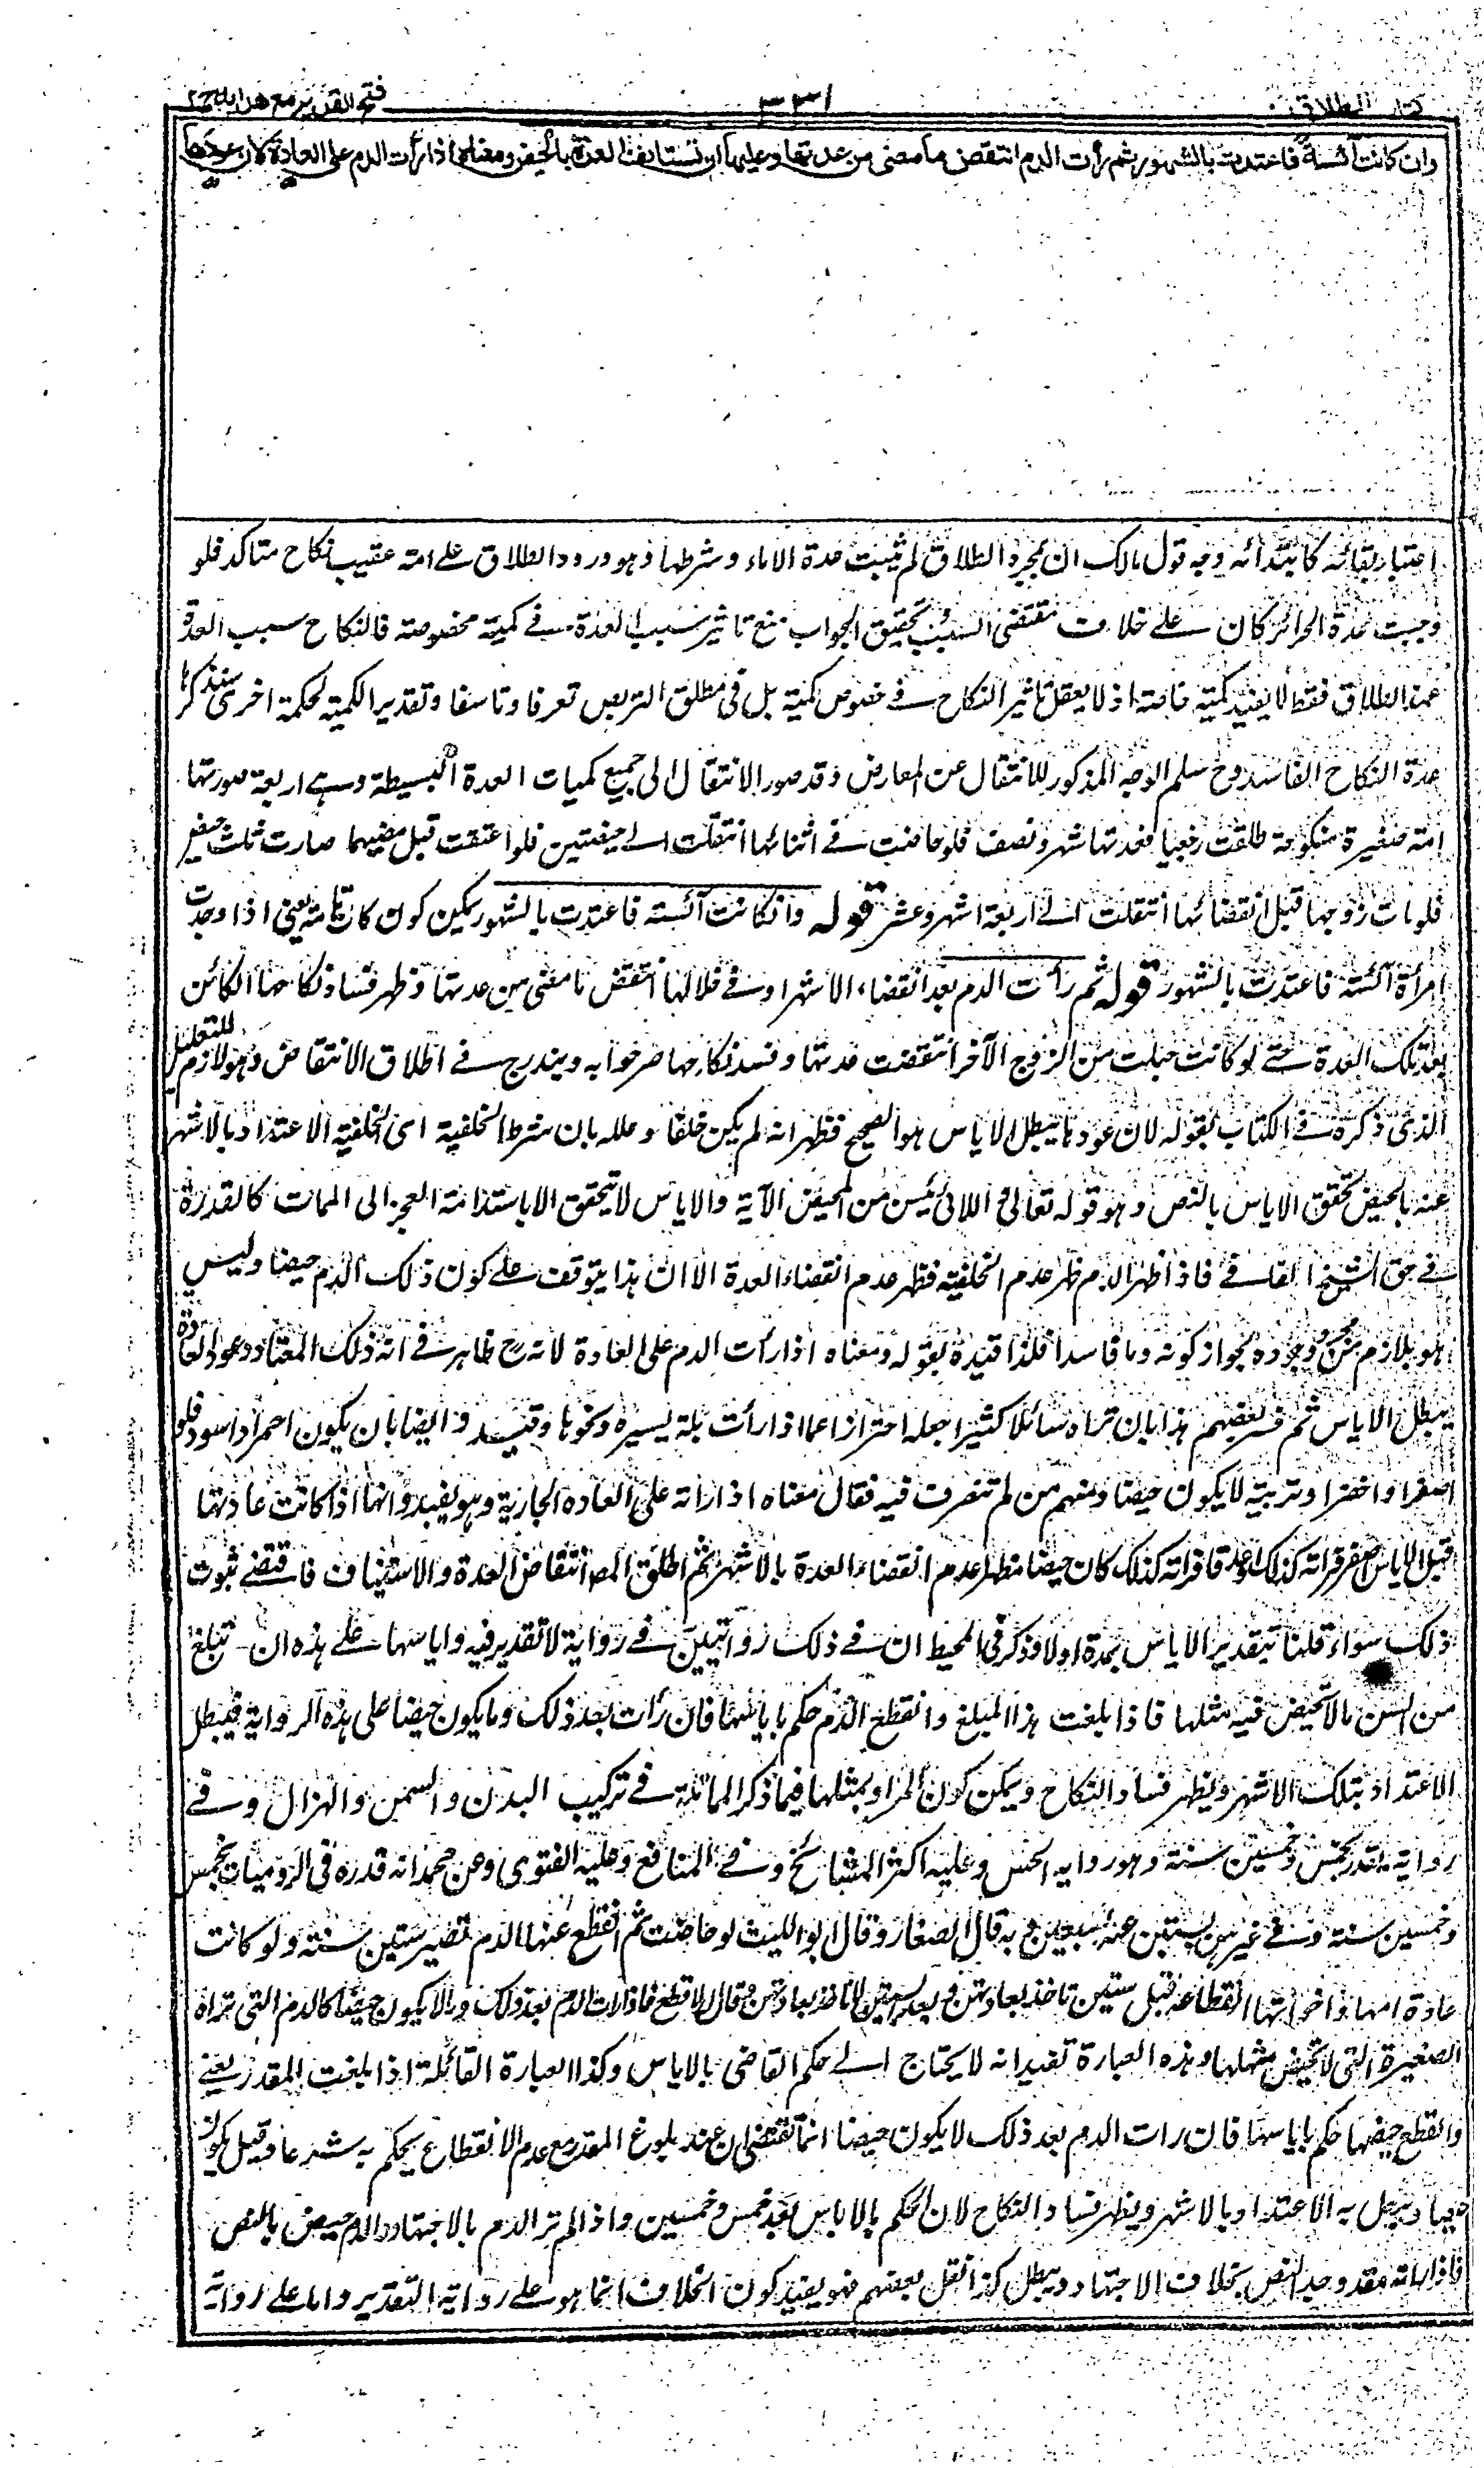 كتاب الطلاق
٣٣١
فتح القدير مع هدايه ج٢
وان كانت آئسة فاعتدت بالشهور ثم رأت الدم انتقض ما مضى من عدتها وعليها ان تستانف العدة بالحيض ومعناه اذا رأت الدم على العادة لان عودها
اعتبار بقائه كابتدائه وجه قول مالك ان بمجرد الطلاق لم تثبت عدة الاماء وشرطها وهو ورود الطلاق على امة عقيب نكاح متاكد فلو
وجبت عدة الحرائر كان على خلاف مقتضى السبب وتحقيق الجواب منع تاثير سبب العدة في كمية مخصوصة فالنكاح سبب العدة
عند الطلاق فقط لا يفيد كمية خاصة اذ لا يعقل تاثير النكاح في خصوص كمية بل في مطلق التربص تعرفا وتاسفا وتقدير الكمية لحكمة اخرى سنذكرها
عدة النكاح الفاسد وح سلم الوجه المذكور للانتقال عن المعارض وقد صور الانتقال الى جميع كميات العدة البسيطة وهي اربعة صورتها
امة صغيرة منكوحة طلقت رجعيا فعدتها شهر ونصف فلو حاضت في اثنائها انتقلت الى حيضتين فلو اعتقت قبل مضيهما صارت ثلث حيض
فلو مات زوجها قبل انقضائها انتقلت الى اربعة اشهر وعشر قوله وان كانت آئسة فاعتدت بالشهور يمكن كون كان تامة يعني اذا وجدت
امرأة آئسة فاعتدت بالشهور قوله ثم رأت الدم بعد انقضاء الاشهر او في خلالها انتقض ما مضى من عدتها وظهر فساد نكاحها الكائن
بعد تلك العدة حتى لو كانت حبلت من الزوج الآخر انتقضت عدتها وفسد نكاحها صرحوا به ويندرج في اطلاق الانتقاض وهو لازم للتعليل
الذي ذكره في الكتاب بقوله لان عودها يبطل الاياس هو الصحيح فظهر انه لم يكن خلفا وعلله بان شرط الخلفية اي لخلفية الاعتداد بالاشهر
عنه بالحيض تحقق الاياس بالنص وهو قوله تعالى واللائي يئسن من المحيض الآية والاياس لا يتحقق الا باستدامة العجز الى الممات كالفدية
في حق الشيخ الفاني فاذا ظهر الدم ظهر عدم الخلفية فظهر عدم انقضاء العدة الا ان هذا يتوقف على كون ذلك الدم حيضا وليس
هو بلازم من مجرد وجوده لجواز كونه دما فاسدا فلذا قيده بقوله ومعناه اذا رأت الدم على العادة لانه ح ظاهر في انه ذلك المعتاد وعود العادة
يبطل الاياس ثم فسر بعضهم هذا بان تراه سائلا كثيرا جعله احترازا عما اذا رأت بلة يسيرة ونحوها وقيدوه ايضا بان يكون احمر او اسود فلو
اصفر او اخضر او تربية لا يكون حيضا ومنهم من لم يتصرف فيه فقال معناه اذا راته على العادة الجارية وهو يفيد انها اذا كانت عادتها
قبل الاياس اصفر فراته كذلك او علقا فراته كذلك كان حيضا فظهر عدم انقضاء العدة بالاشهر ثم اطلق المص انتقاض العدة والاستيناف فاقتضى ثبوت
ذلك سواء قلنا بتقدير الاياس بمدة او لا وذكر في المحيط ان في ذلك روايتين في رواية لا تقدير فيه واياسها على هذه ان تبلغ
من السن ما لا تحيض فيه مثلها فاذا بلغت هذا المبلغ وانقطع الدم حكم باياسها فان رأت بعد ذلك دما يكون حيضا على هذه الرواية فيبطل
الاعتداد بتلك الاشهر ويظهر فساد النكاح ويمكن كون المراد بمثلها فيما ذكر المماثلة في تركيب البدن والسمن والهزال وفي
رواية تقدر بخمس وخمسين سنة وهو رواية الحسن وعليه اكثر المشائخ وفي المنافع وعليه الفتوى وعن محمد انه قدره في الروميات بخمس
وخمسين سنة وفي غيرهن بستين وعنه بسبعين وبه قال الصفار وقال ابو الليث لو حاضت ثم انقطع عنها الدم تصير ستين سنة ولو كانت
عادة امها واخواتها انقطاعه قبل ستين تاخذ بعادتهن وبعد الستين لا تاخذ بعادتهن وقال الاقطع فاذا رأت الدم بعد ذلك دما لا يكون حيضا كالدم التي تراه
الصغيرة التي لا تحيض مثلها وهذه العبارة تفيد انه لا يحتاج الى حكم القاضي بالاياس وكذا العبارة القائلة اذا بلغت المقدر يعني
وانقطع حيضها حكم باياسها فان رات الدم بعد ذلك لا يكون حيضا انما تقتضي ان عند بلوغ المقدر مع عدم الانقطاع يحكم به شرعا وقيل يكون
حيضا ويبطل به الاعتداد بالاشهر ويظهر فساد النكاح لان الحكم بالاياس بعد خمس وخمسين واذا لم تر الدم بالاجتهاد والدم حيض بالنص
فاذا راته فقد وجد النص بخلاف الاجتهاد ويبطل كذا نقل بعضهم فهو يفيد كون الخلاف انما هو على رواية التقدير واما على رواية